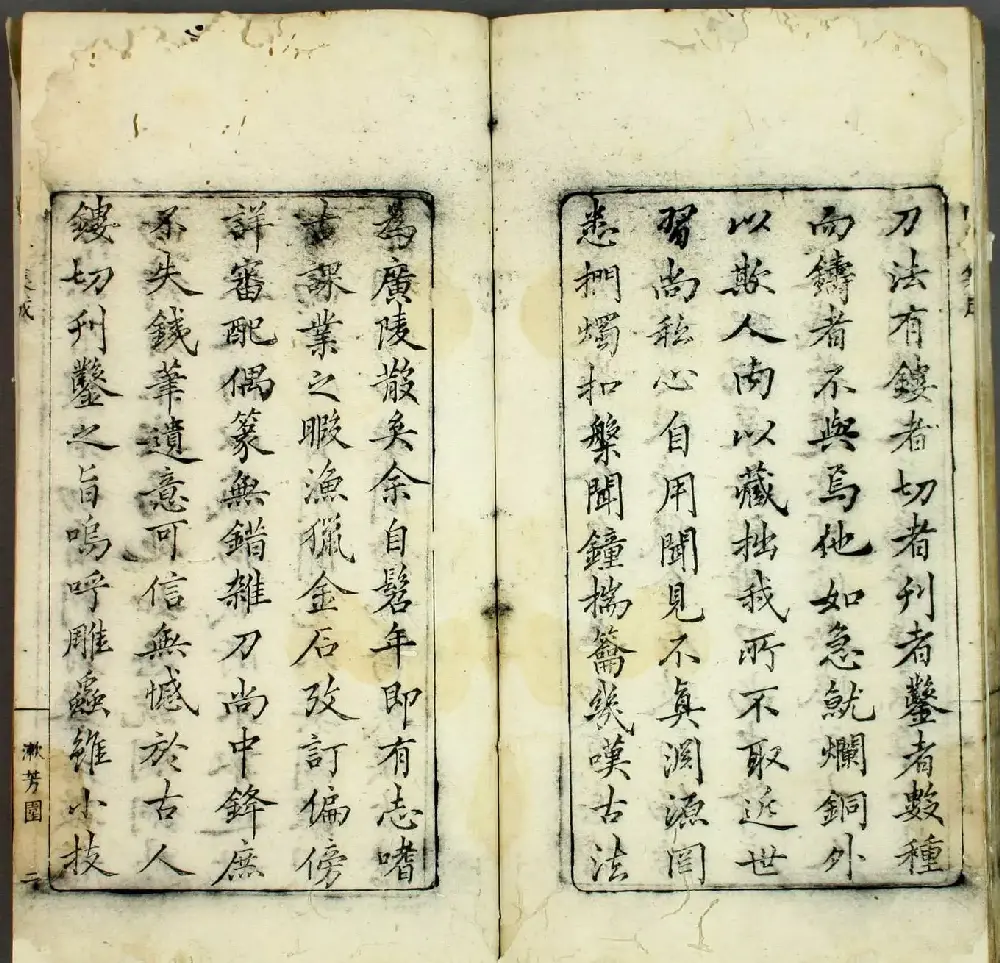 刀法有鏤者切者刊者鑿者數種
而鑄者不與焉他如急就爛銅外
以欺人內以藏拙我所不取近世
習尚私心自用聞見不真淵源罔
悉捫燭扣槃聞鐘揣籥幾嘆古法
為廣陵散矣余自髫年即有志嗜
古課業之暇漁獵金石攷訂偏傍
詳審配偶篆無錯雜刀尚中鋒庶
不失鐵筆遺意可信無憾於古人
鏤切刊鑿之旨嗚呼雕蟲雖小技
漱芳園
二